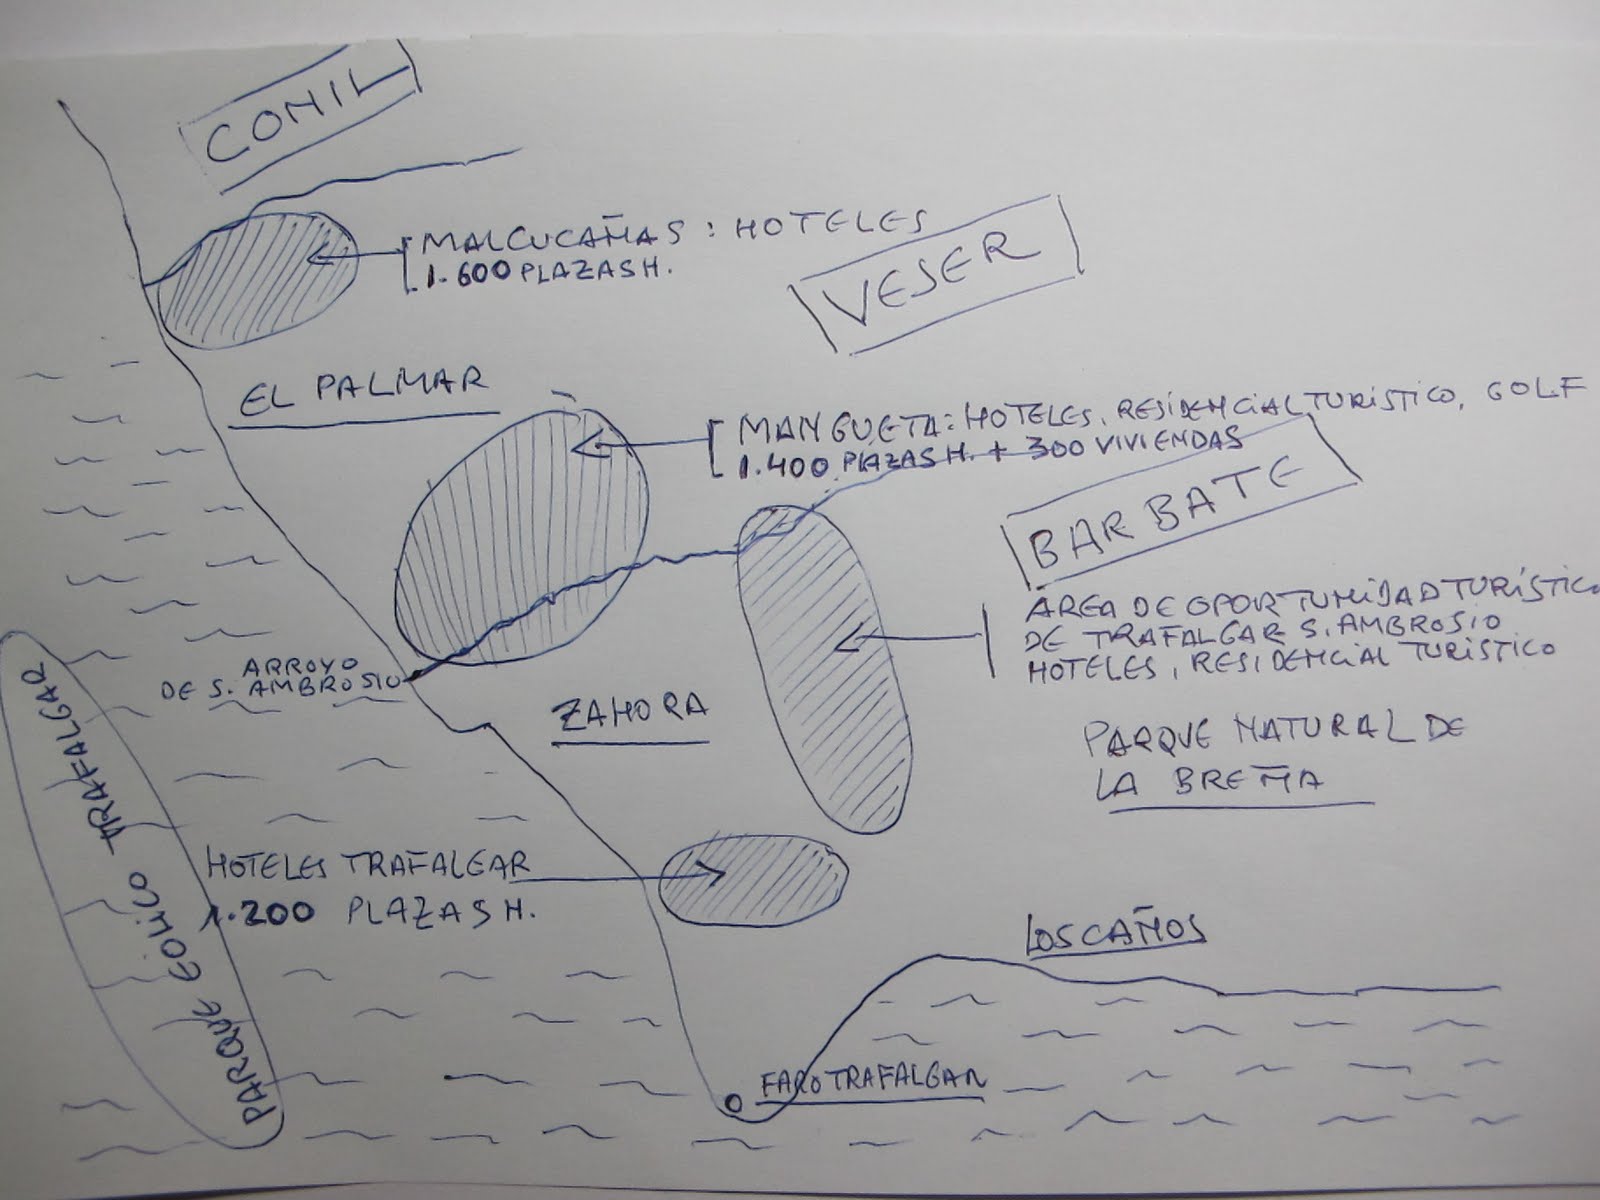 CONIL
MALCUCAÑAS: HOTELES
1.600 PLAZAS H.
VEJER
EL PALMAR
MANGUETA: HOTELES, RESIDENCIAL TURÍSTICO, GOLF
1.400 PLAZAS H. + 300 VIVIENDAS
BARBATE
AREA DE OPORTUNIDAD TURÍSTICO
DE TRAFALGAR S. AMBROSIO
HOTELES, RESIDENCIAL TURÍSTICO
ARROYO
DE S. AMBROSIO
ZAHORA
PARQUE NATURAL DE
LA BREÑA
PARQUE EÓLICO TRAFALGAR
HOTELES TRAFALGAR
1.200 PLAZAS H.
LOS CAÑOS
FARO TRAFALGAR